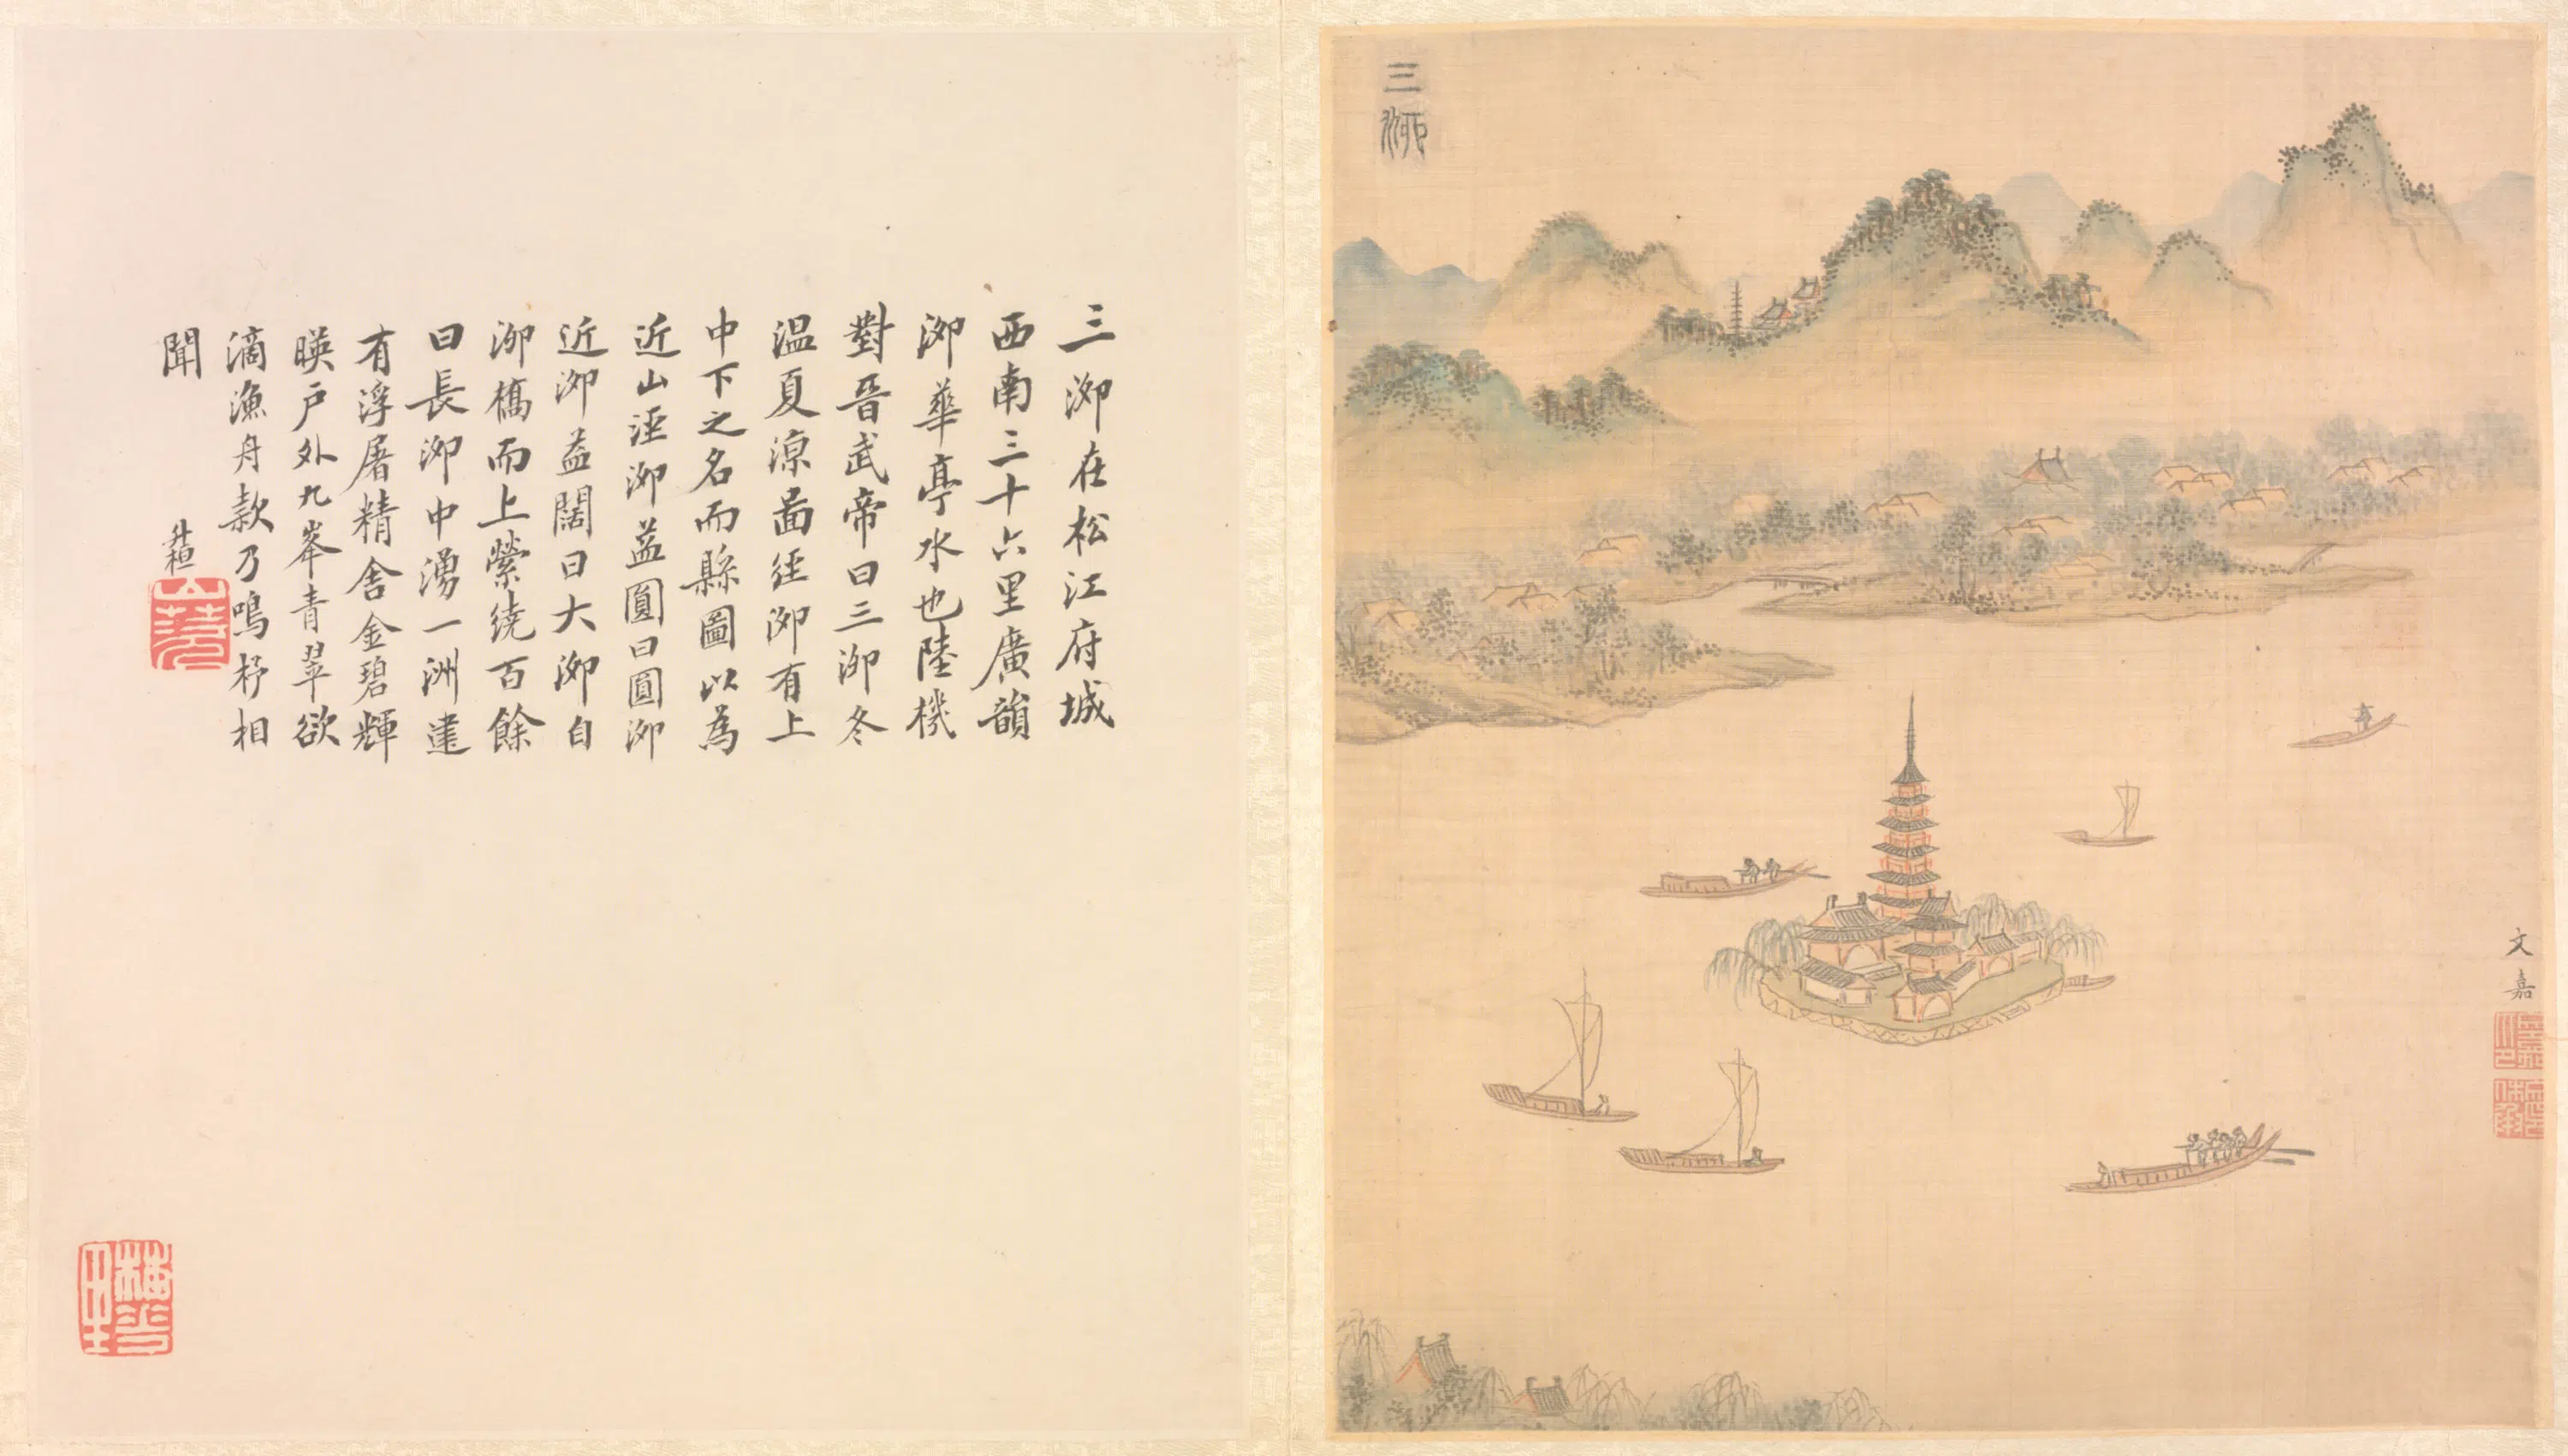 三泖
文嘉
三泖在松江府城
西南三十六里廣韻
泖華亭水也陸機
對晉武帝曰三泖冬
温夏凉啚経泖有上
中下之名而縣圖以為
近山泾泖益圓曰圓泖
近泖益闊曰大泖自
泖橋而上縈繞百餘
曰長泖中湧一洲建
有浮屠精舍金碧輝
暎戶外九峯青翠欲
滴漁舟款乃鳴杼相
聞
升桓